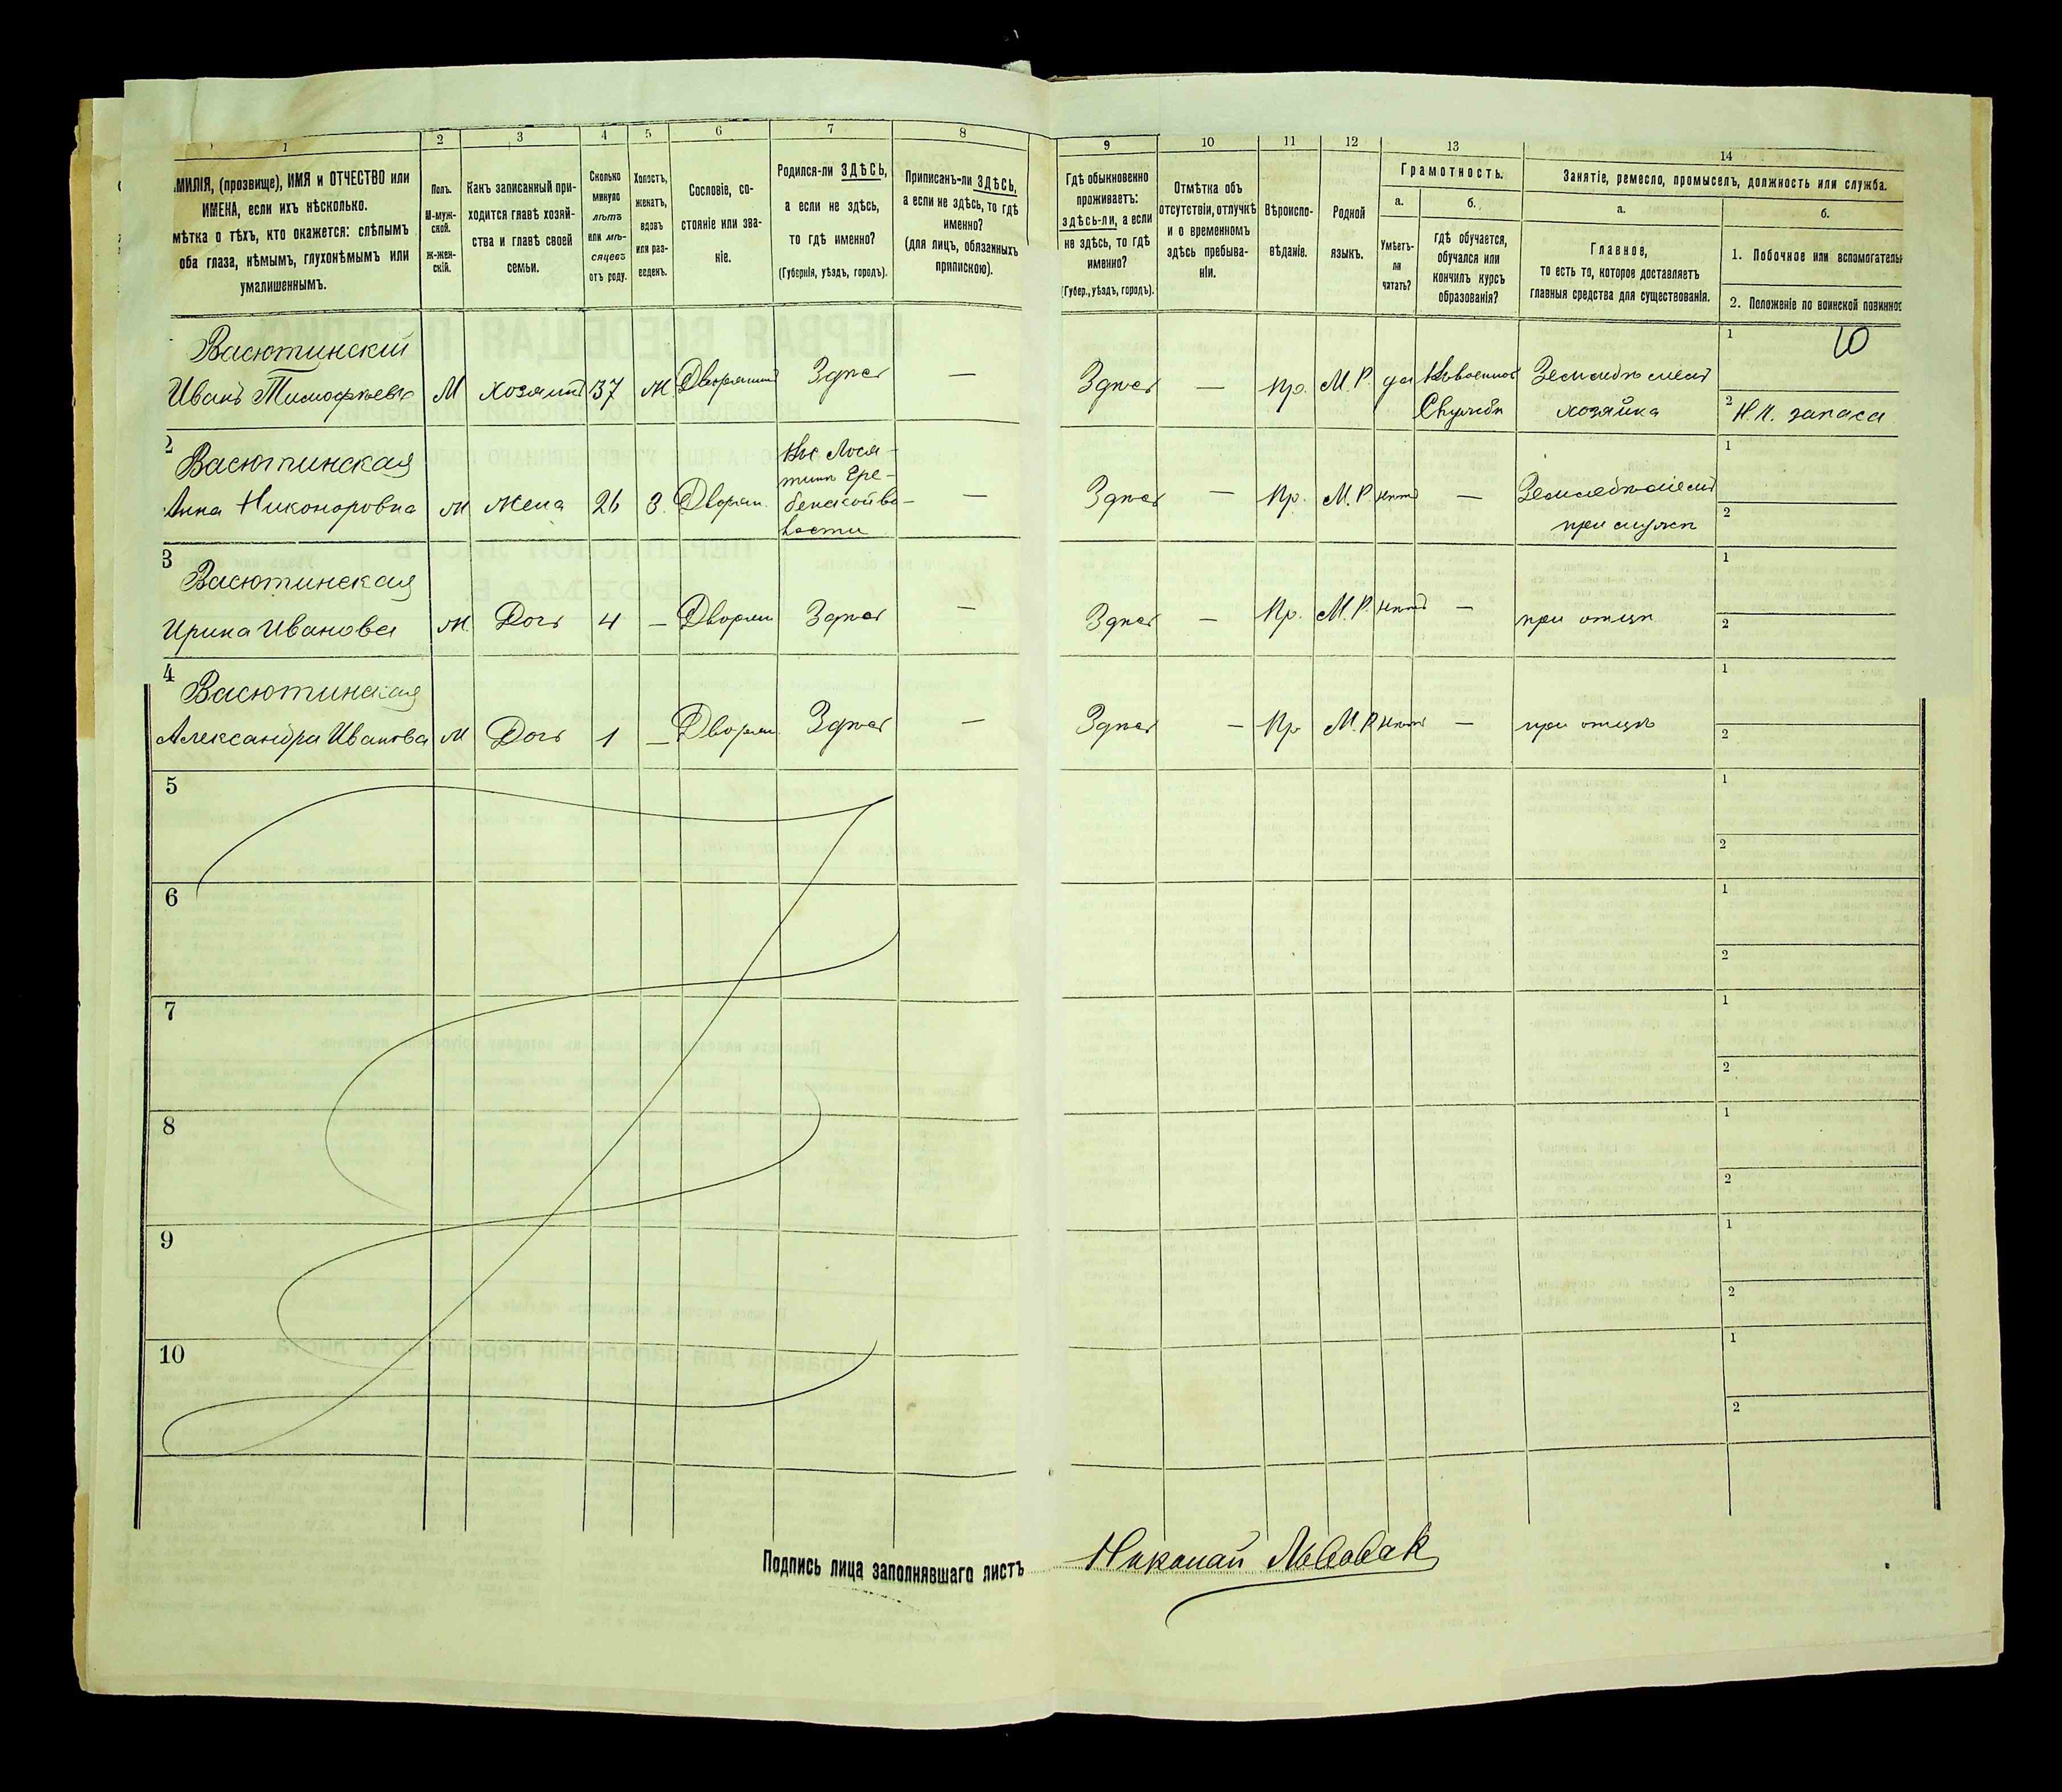 1
2
3
4
5
6
7
8
9
10
11
12
13
14
МИЛІЯ, (прозвище), ИМЯ и ОТЧЕСТВО или
ИМЕНА, если ихъ нѣсколько.
мѣтка о тѣхъ, кто окажется: слѣпымъ
оба глаза, нѣмымъ, глухонѣмымъ или
умалишеннымъ.
Полъ.
М-муж-
ской.
Ж-жен-
скій.
Какъ записанный при-
ходится главѣ хозяй-
ства и главѣ своей
семьи.
Сколько
минуло
лѣтъ
или мѣ-
сяцевъ
отъ роду.
Холостъ,
женатъ,
вдовъ
или раз-
веденъ.
Сословіе, со-
стояніе или зва-
ніе.
Родился-ли ЗДѢСЬ,
а если не здѣсь,
то гдѣ именно?
(Губернія, уѣздъ, городъ).
Приписанъ-ли ЗДѢСЬ,
а если не здѣсь, то гдѣ
именно?
(для лицъ, обязанныхъ
припискою).
Гдѣ обыкновенно
проживаетъ:
здѣсь-ли, а если
не здѣсь, то гдѣ
именно?
(Губер., уѣздъ, городъ).
Отмѣтка объ
отсутствіи, отлучкѣ
и о временномъ
здѣсь пребыва-
ніи.
Вѣроиспо-
вѣданіе.
Родной
языкъ.
Грамотность.
а.
б.
Умѣетъ-
ли
читать?
гдѣ обучается,
обучался или
кончилъ курсъ
образованія?
Занятіе, ремесло, промыселъ, должность или служба.
а.
б.
Главное,
то есть то, которое доставляетъ
главныя средства для существованія.
1. Побочное или вспомогатель
2. Положеніе по воинской повиннос
Васютинский
Иванъ Тимофѣевъ М хозяинъ 37 Ж Дворянинъ Здѣсь — Здѣсь — Пр. М.Р. да
Службѣ хозяйка
1 10
2 Н.Ч. запаса
2
Васютинская
Анна Никоноровна Ж Жена 26 З. Дворян. — Здѣсь — Пр. М.Р. нѣтъ —
при мужѣ
1
2
3
Васютинская
Ирина Иванова Ж. Дочь 4 — Дворян Здѣсь — Здѣсь — Пр. М.Р. нѣтъ — при отцѣ
1
2
4
Васютинская
Александра Иванова Ж Дочь 1 — Дворян. Здѣсь — Здѣсь — Пр М.Р нѣтъ — при отцѣ
1
2
5
1
2
6
1
2
7
1
2
8
1
2
9
1
2
10
1
2
Подпись лица заполнявшаго листъ Николай